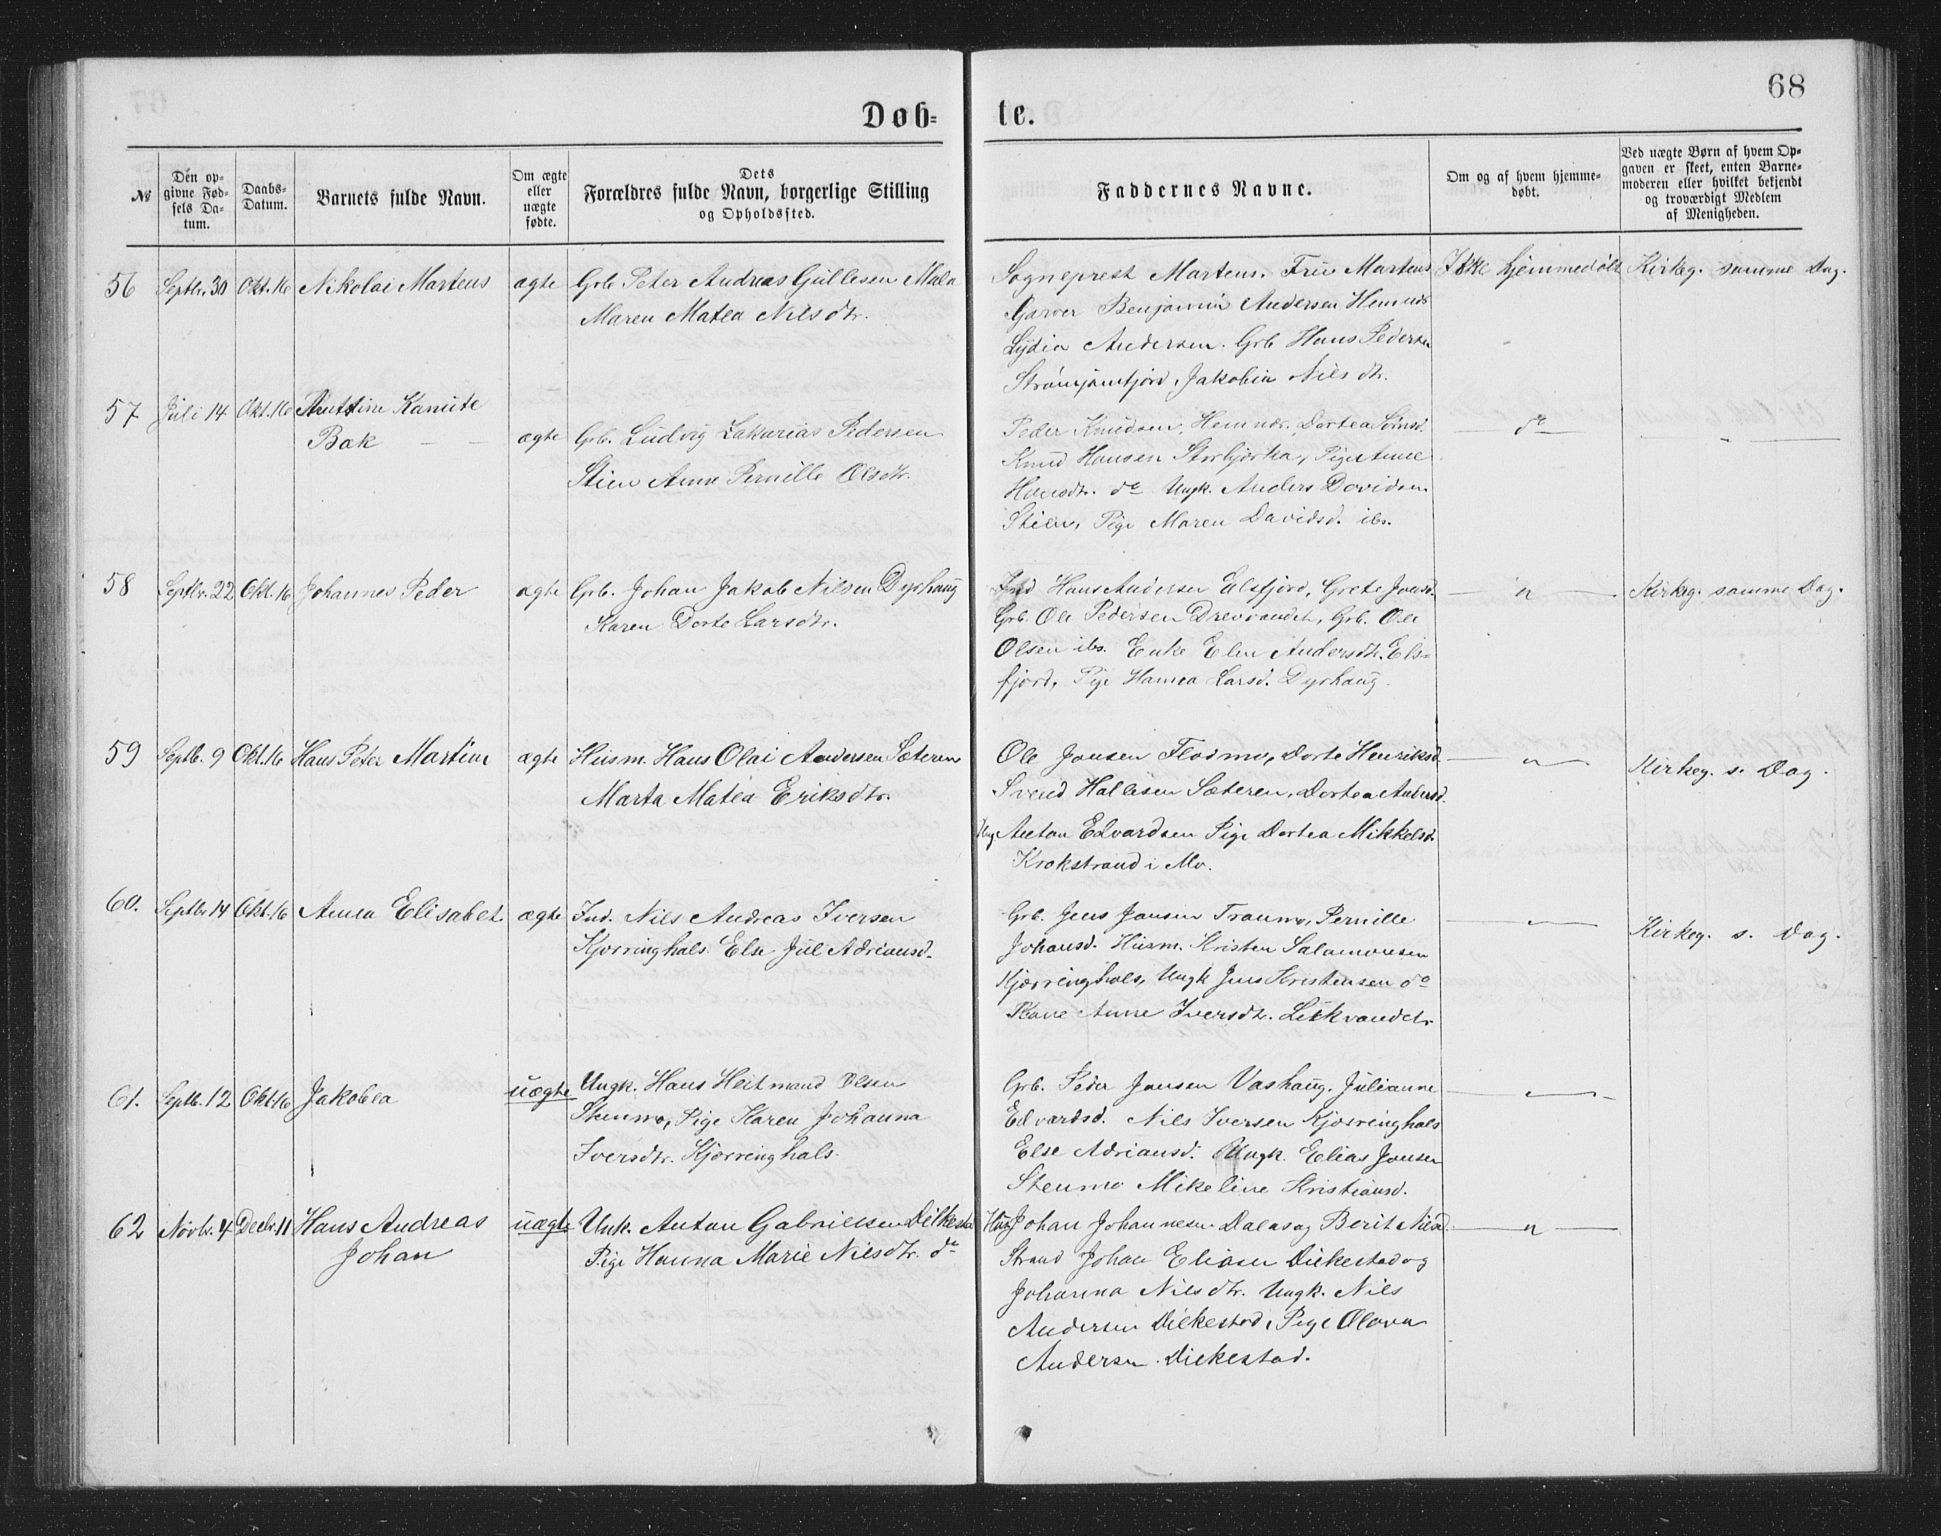 68
Døb- te.
№ | Den opgivne Fødsels Datum. | Daabs-Datum. | Barnets fulde Navn. | Om ægte eller uægte fødte. | Dets Forældres fulde Navn, borgerlige Stilling og Opholdssted. | Faddernes Navne. | Om og af hvem hjemmedøbt. | Ved uægte Børn af hvem Opgaven er skeet, enten Barnemoderen eller hvilket bekjendt og troværdigt Medlem af Menigheden.
56 Septbr. 30 Okt. 16 Nikolai Martens ægte Grb Peter Andreas Gullesen Mala
Maren Matea Nilsdtr.
Sogneprest Martens. Frue Martens Ikke hjemmedøbt Kirkeg. samme Dag.
Garver Benjamin Andersen Hemnes
Lydia Andersen. Grb Hans Pedersen
Jakobia Nilsdtr.
57 Juli 14 Okt. 16
Bæk ægte Grb. Ludvig Zakarias Pedersen
Stien Anne Pernille Olsdtr.
Peder Knudsen, Hemnes. Dortea do
Knud Hansen Storbjorka, Pige Anne
Hansdtr. do Ungk. Anders Davidsen
Stien, Pige Maren Davidsd. ibs.
58 Septbr. 22 Okt. 16 Johannes Peder ægte Grb. Johan Jakob Nilsen Dyrhaug
Karen Dorte Larsdtr.
Ind Hans Andersen Elsfjord, Grete " Kirkeg. samme Dag.
Grb. Ole Pedersen Drevvandet, Grb. Ole
Olsen ibs. Enke Elen Andersdtr. Els-
fjord, Pige Hanna Larsd. Dyrhaug.
59 Septb. 9 Okt. 16 Hans Peter Martin ægte Husm. Hans Olai Andersen Sæteren
Marta Matea Eriksdtr.
Ole Jonsen Flodmo, Dorte Henriksd. " Kirkeg. s. Dag.
Svend Sæteren, Dortea
Ung. Anton Edvardsen Pige Dortea Mikkelsd.
Krokstrand i Mo.
60. Septbr 14 Okt. 16 Anna Elisabet ægte Ind. Nils Andreas Iversen
Kjerringhals. Else Jul Adriansd.
Grb. Jens Jansen Pernille " Kirkeg. s. Dag.
Johansd. Husm. Kristen Salamonsen
Kjerringhals, Ungk Jens Kristensen do
Kone Anne Iversdtr.
61. Septb. 12 Okt 16 Jakobea uægte Ungk. Hans Heitmand Olsen
Stenmo, Pige Karen Johanna
Iversdtr. Kjerringhals.
Grb. Peder Jansen Vashaug. Julianne "
Edvardsd. Nils Iversen Kjerringhals
Else Adriansd. Ungk. Elias Jonsen
Stenmo Mikeline Kristiansd.
62 Novbr. 4 Decbr. 11 Hans Andreas uægte Unk. Anton Gabrielsen Dilkestad
Johan Pige Hanna Marie Nilsdtr. do
Johan Johannesen Dalas og Berit Nilsd. "
Strand Johan Eliasen Dilkestad og
Johanna Nilsdtr. Ungk. Nils
Andersen Dilkestad, Pige Olava
Andersen. Dilkestad.